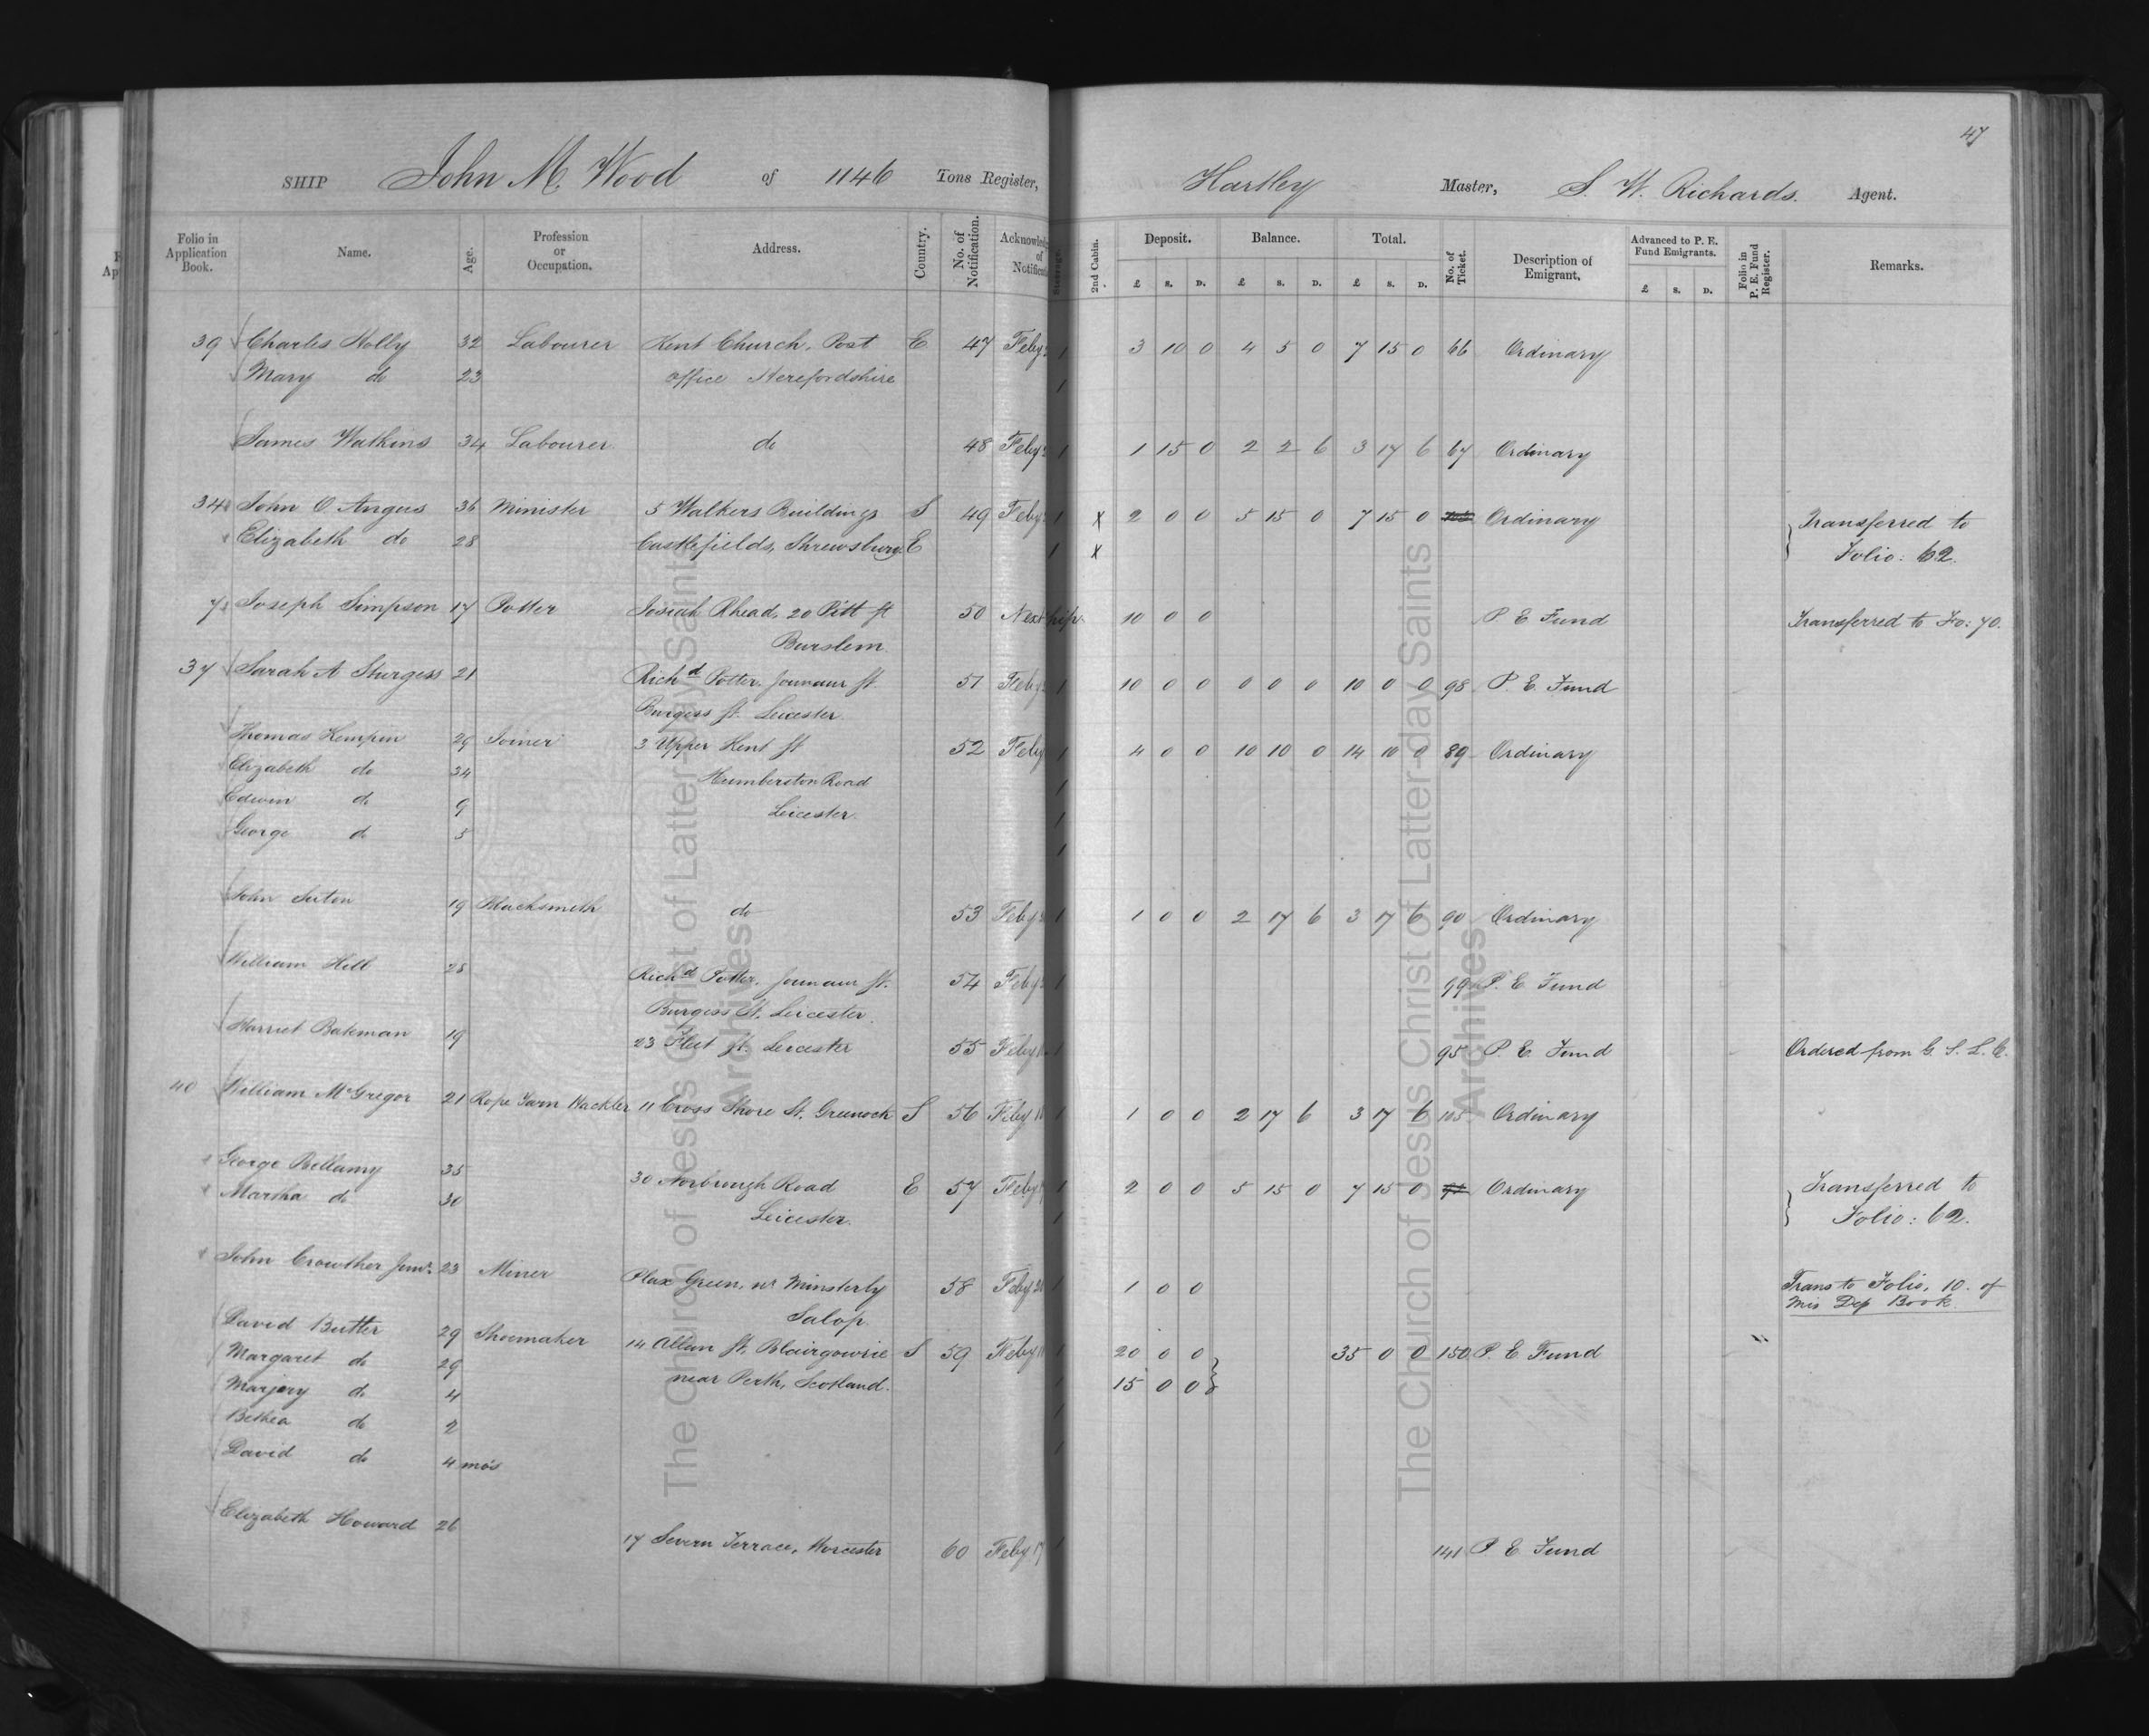 47
SHIP John M. Wood of 1146 Tons Register, Hartley Master, S. W. Richards. Agent.
Folio in Application Book. Name. Age. Profession or Occupation. Address. Country. No. of Notification. 2nd Cabin. Deposit. Balance. Total. No. of Ticket. Description of Emigrant. Advanced to P. E. Fund Emigrants. Folio in P. E. Fund Register. Remarks.
£ s. D. £ s. D. £ s. D. £ s. D.
39 Charles Holly 32 Labourer Kent Church, Post E 47 Feby 1 3 10 0 4 5 0 7 15 0 66 Ordinary
Mary do 23 office Herefordshire 1
James Watkins 34 Labourer do 48 Feby 1 1 15 0 2 2 6 3 17 6 67 Ordinary
34 John O Angus 36 Minister 5 Walkers Buildings S 49 Feby 1 X 2 0 0 5 15 0 7 15 0 Ordinary Transferred to
Elizabeth do 28 Castlefields, Shrewsbury E 1 X Folio: 62.
7 Joseph Simpson 17 Potter Josiah Rhead, 20 Pitt st 50 Next ship. 10 0 0 P E Fund Transferred to Fo: 70.
Burslem.
37 Sarah A Sturgess 21 Richd Potter. st. 51 Feby 1 10 0 0 0 0 0 10 0 0 98 P. E. Fund
Burgess st. Leicester.
Thomas Kempin 29 Joiner 3 Upper Kent st 52 Feby 1 4 0 0 10 10 0 14 10 0 89 Ordinary
Elizabeth do 34 Humberston Road 1
Edwin do 9 Leicester. 1
George do 5 1
John Suton 19 Blacksmith do 53 Feby 1 1 0 0 2 17 6 3 17 6 90 Ordinary
William Hill 28 Richd Potter. st. 54 Feby 1 99 P. E Fund
Burgess St. Leicester.
Harriet Bateman 19 23 Fleet st. Leicester 55 Feby 1 95 P. E. Fund Ordered from G. S. L. C.
40 William McGregor 21 Rope Yarn Hackler 11 Cross Shore St. Greenock S 56 Feby 1 1 0 0 2 17 6 3 17 6 105 Ordinary
George Bellamy 35 30 Norbrough Road E 57 Feby 1 2 0 0 5 15 0 7 15 0 Ordinary Transferred to
Martha do 30 Leicester. 1 Folio: 62.
John Crowther Junr. 23 Miner Plax Green, nr Minsterly 58 Feby 20 1 1 0 0 Trans to Folio, 10. of
Salop. Mis Dep Book.
David Butter 29 Shoemaker 14 Allan st, Blairgowrie S 59 Feby 1 20 0 0 35 0 0 150 P. E. Fund "
Margaret do 29 near Perth, Scotland. 1 15 0 0
Marjory do 4 1
Bethea do 2 1
David do 4 mos
Elizabeth Howard 26 17 Severn Terrace, Worcester 60 Feby 17 1 141 P. E. Fund
The Church of Jesus Christ of Latter-day Saints
Archives
The Church of Jesus Christ of Latter-day Saints
Archives